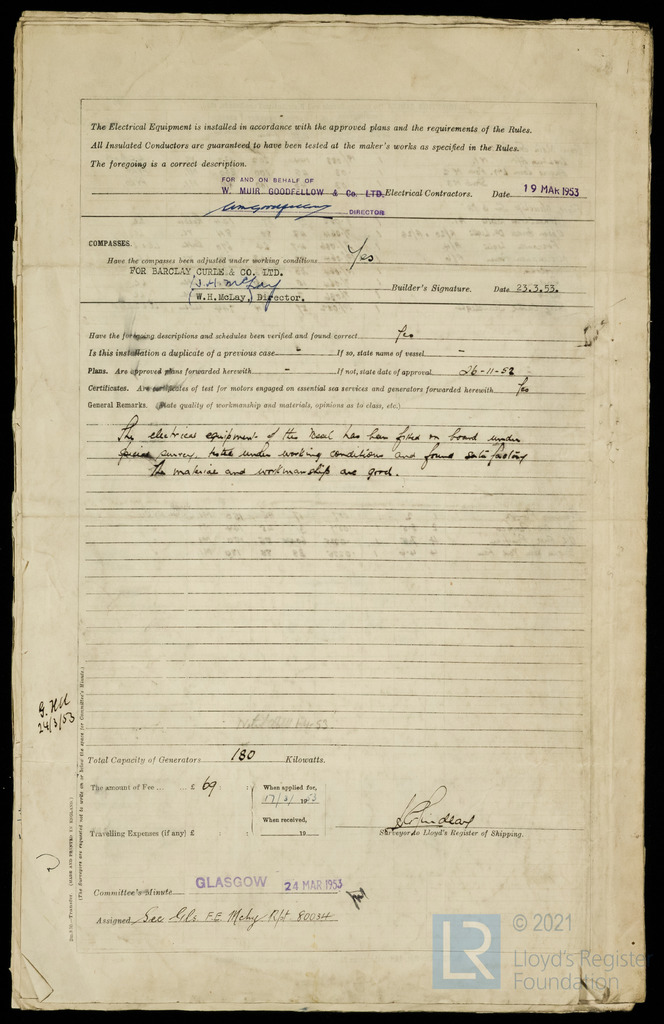 The Electrical Equipment is installed in accordance with the approved plans and the requirements of the Rules.
All Insulated Conductors are guaranteed to have been tested at the maker's works as specified in the Rules.
The foregoing is a correct description.
FOR AND ON BEHALF OF
W. MUIR GOODFELLOW & Co. LTD. Electrical Contractors. Date 19 MAR 1953
DIRECTOR
COMPASSES.
Have the compasses been adjusted under working conditions Yes
FOR BARCLAY CURLE & CO. LTD.
W.H. McLay
(W.H.McLay) Director. Builder's Signature. Date 23.3.53.
Have the foregoing descriptions and schedules been verified and found correct Yes
Is this installation a duplicate of a previous case - If so, state name of vessel -
Plans. Are approved plans forwarded herewith - If not, state date of approval 26-11-52
Certificates. Are certificates of test for motors engaged on essential sea services and generators forwarded herewith Yes
General Remarks. (State quality of workmanship and materials, opinions as to class, etc.)
The electrical equipment of this Vessel has been fitted on board under
special survey, tested under working conditions and found satisfactory
The material and workmanship are good.
24/3/53
Total Capacity of Generators 180 Kilowatts.
The amount of Fee ... £ 69 : : When applied for,
17/3/1953
When received,
Travelling Expenses (if any) £ : : 19
Surveyor to Lloyd's Register of Shipping.
Committee's Minute GLASGOW 24 MAR 1953
Assigned See Gls. F.E. Mchy Rpt 80034
(MADE AND PRINTED IN ENGLAND.)
(The Surveyors are requested not to write on or below the space for Committee's Minute.)
LR
© 2021
Lloyd's Register
Foundation